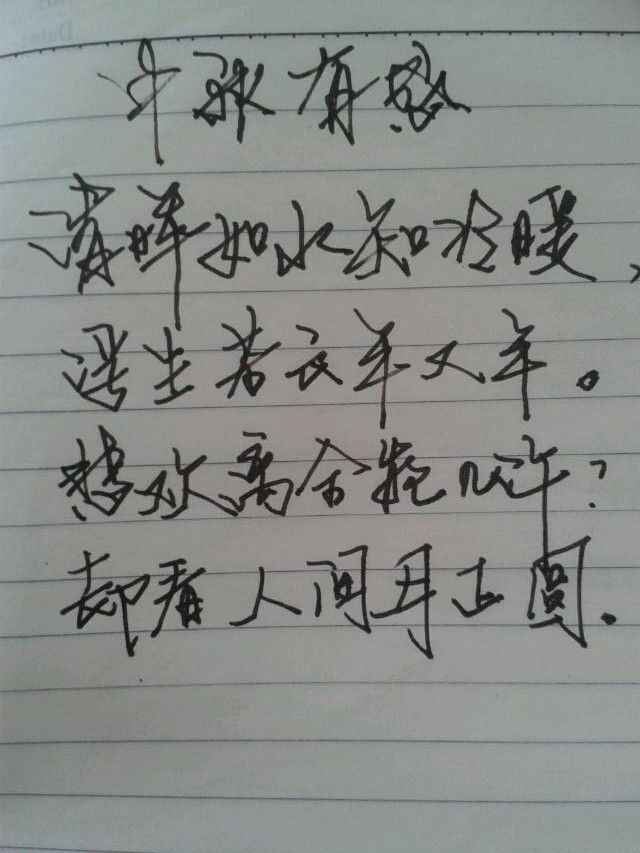 中秋有感
清晖如水知冷暖,
浮生若云年又年。
悲欢离合能几许?
却看人间月正圆.